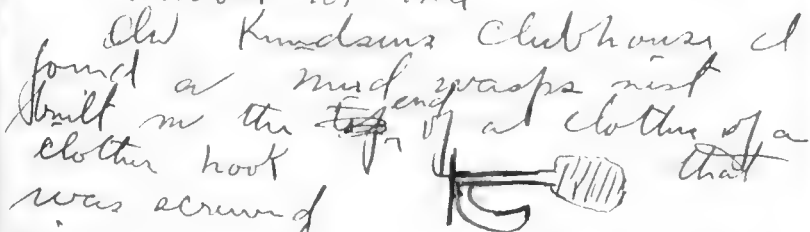 Old Knudsens Clubhouse I
found a mud wasps nest
built on the end of a clothes of a
clothes hook that
was screwed